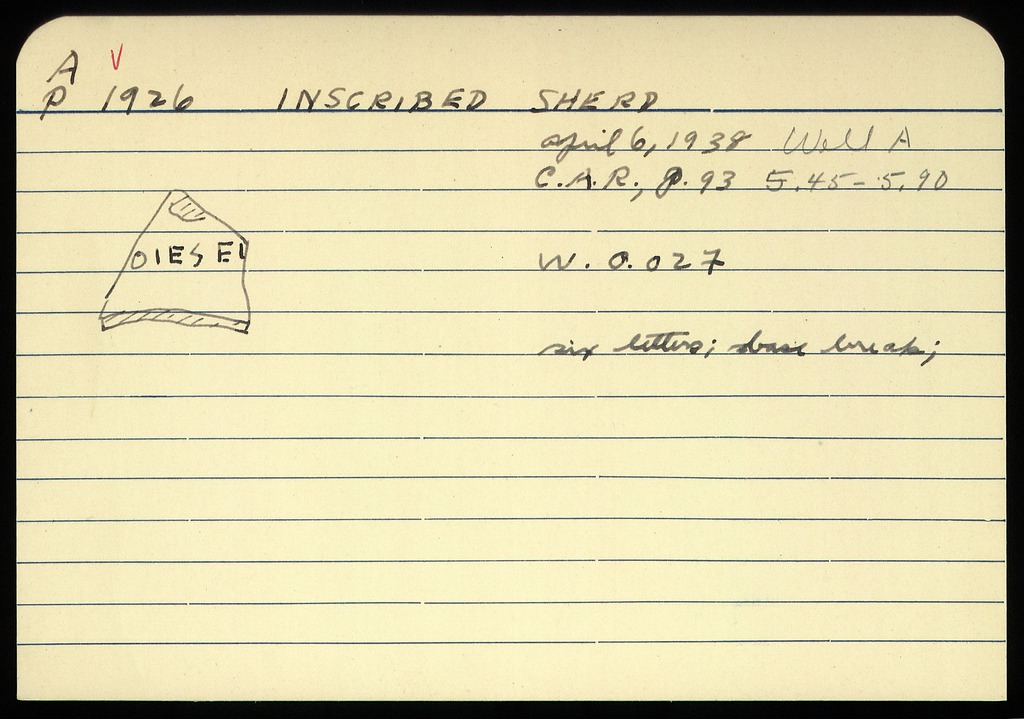 A V
P 1926 INSCRIBED SHERD
April 6, 1938 Well A
C.A.R., p. 93 5.45-5.90
DIESEL
W. 0.027
six letters; base break;